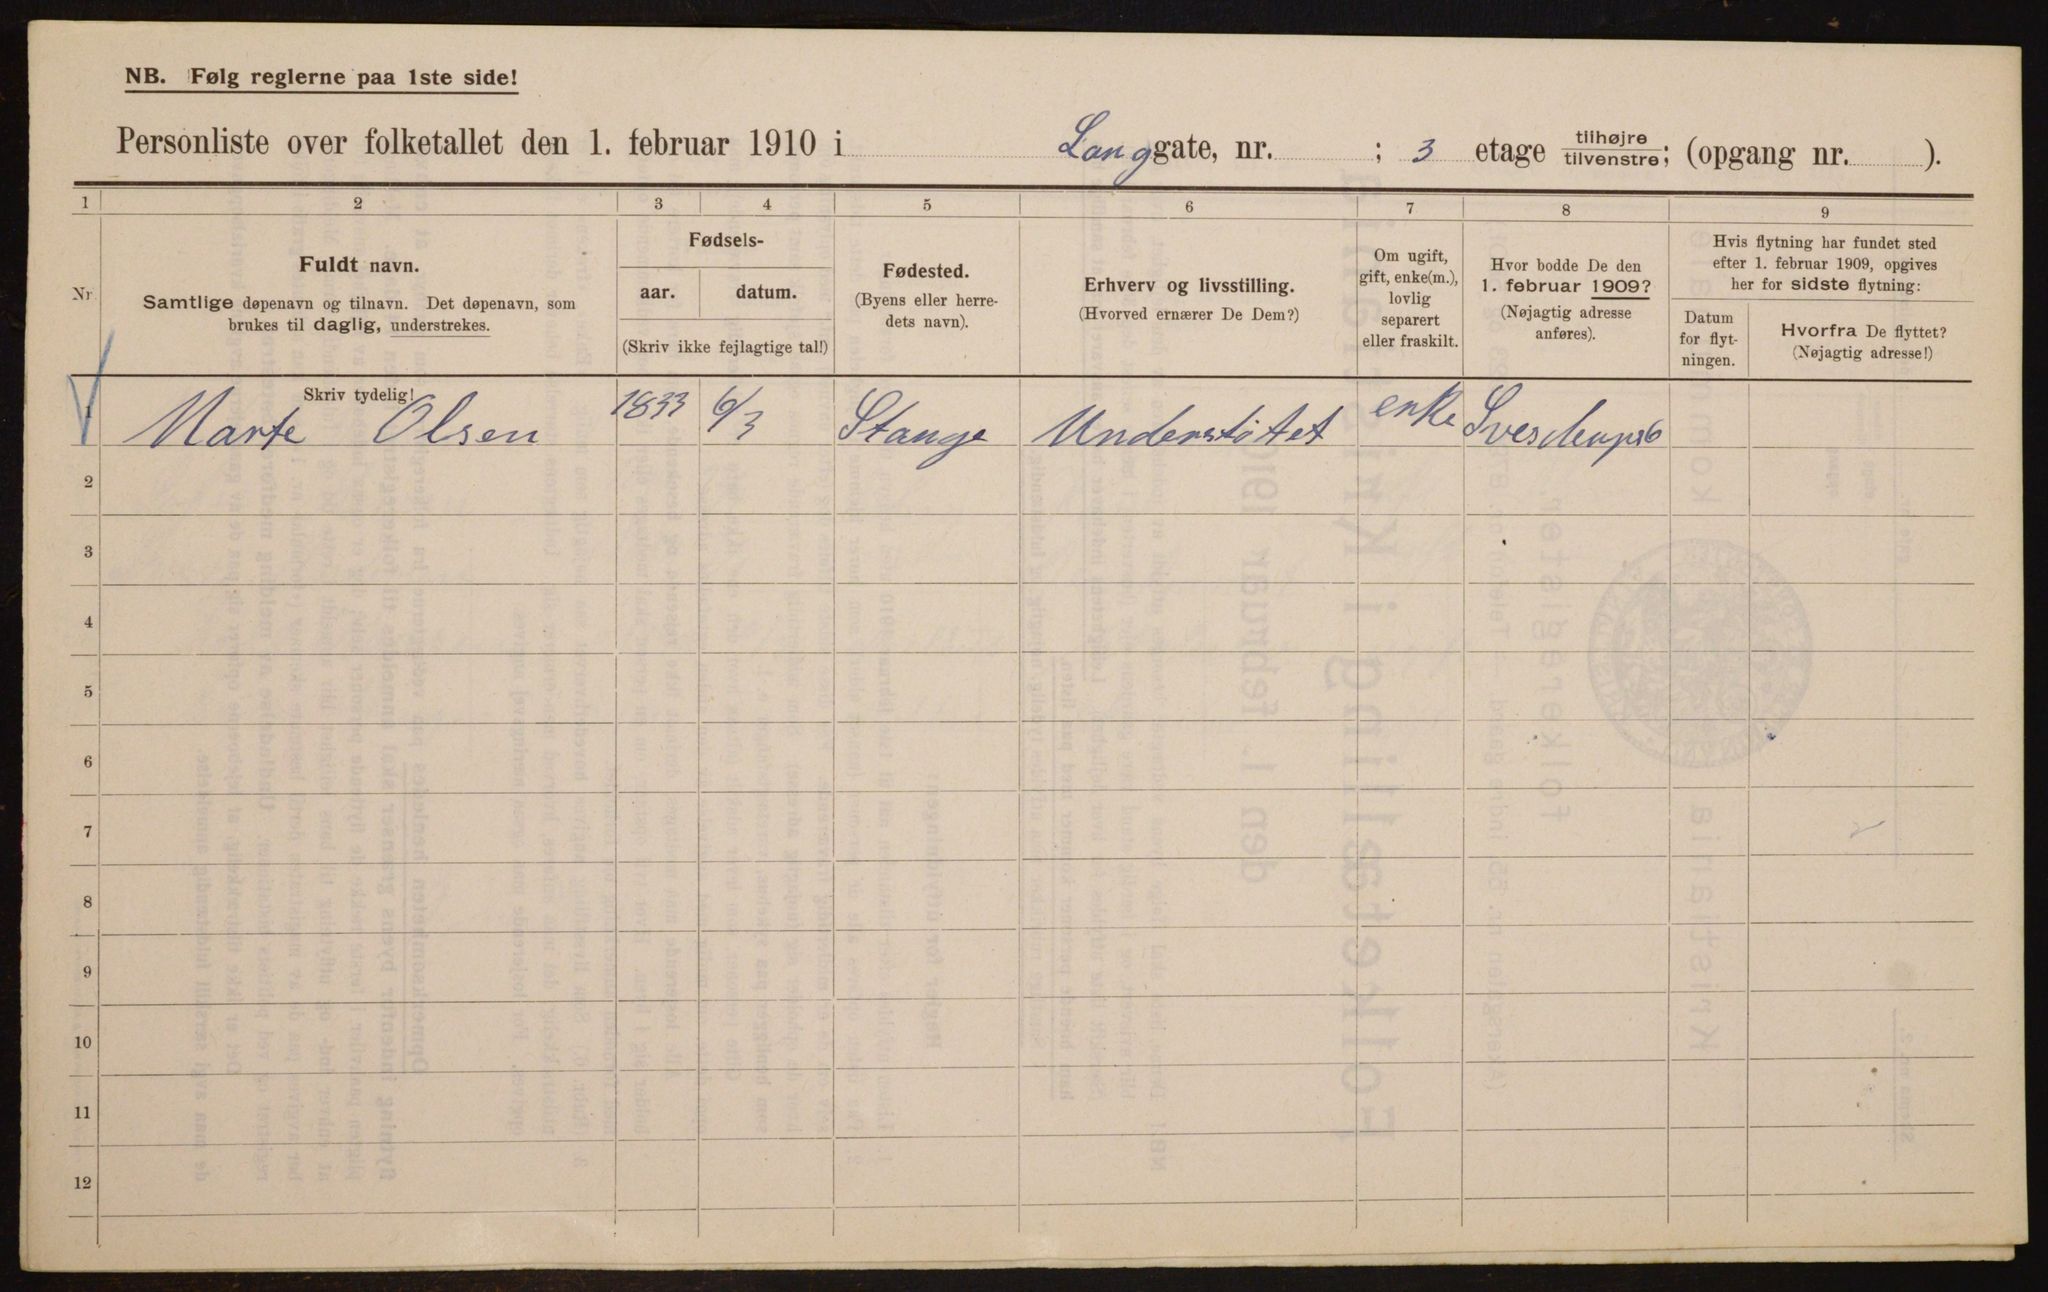 NB. Følg reglerne paa 1ste side!
Personliste over folketallet den 1. februar 1910 i Langgate, nr. ; 3 etage tilhøjre/tilvenstre; (opgang nr. ).
1 2 3 4 5 6 7 8 9
Nr.
Fuldt navn.
Samtlige døpenavn og tilnavn. Det døpenavn, som
brukes til daglig, understrekes.
Fødsels-
aar. datum.
(Skriv ikke fejlagtige tal!)
Fødested.
(Byens eller herre-
dets navn).
Erhverv og livsstilling.
(Hvorved ernærer De Dem?)
Om ugift,
gift, enke(m.),
lovlig
separert
eller fraskilt.
Hvor bodde De den
1. februar 1909?
(Nøjagtig adresse
anføres).
Hvis flytning har fundet sted
efter 1. februar 1909, opgives
her for sidste flytning:
Datum
for flyt-
ningen.
Hvorfra De flyttet?
(Nøjagtig adresse!)
Skriv tydelig!
1 Marte Olsen 1833 6/3 Stange Understøtet enke
2
3
4
5
6
7
8
9
10
11
12